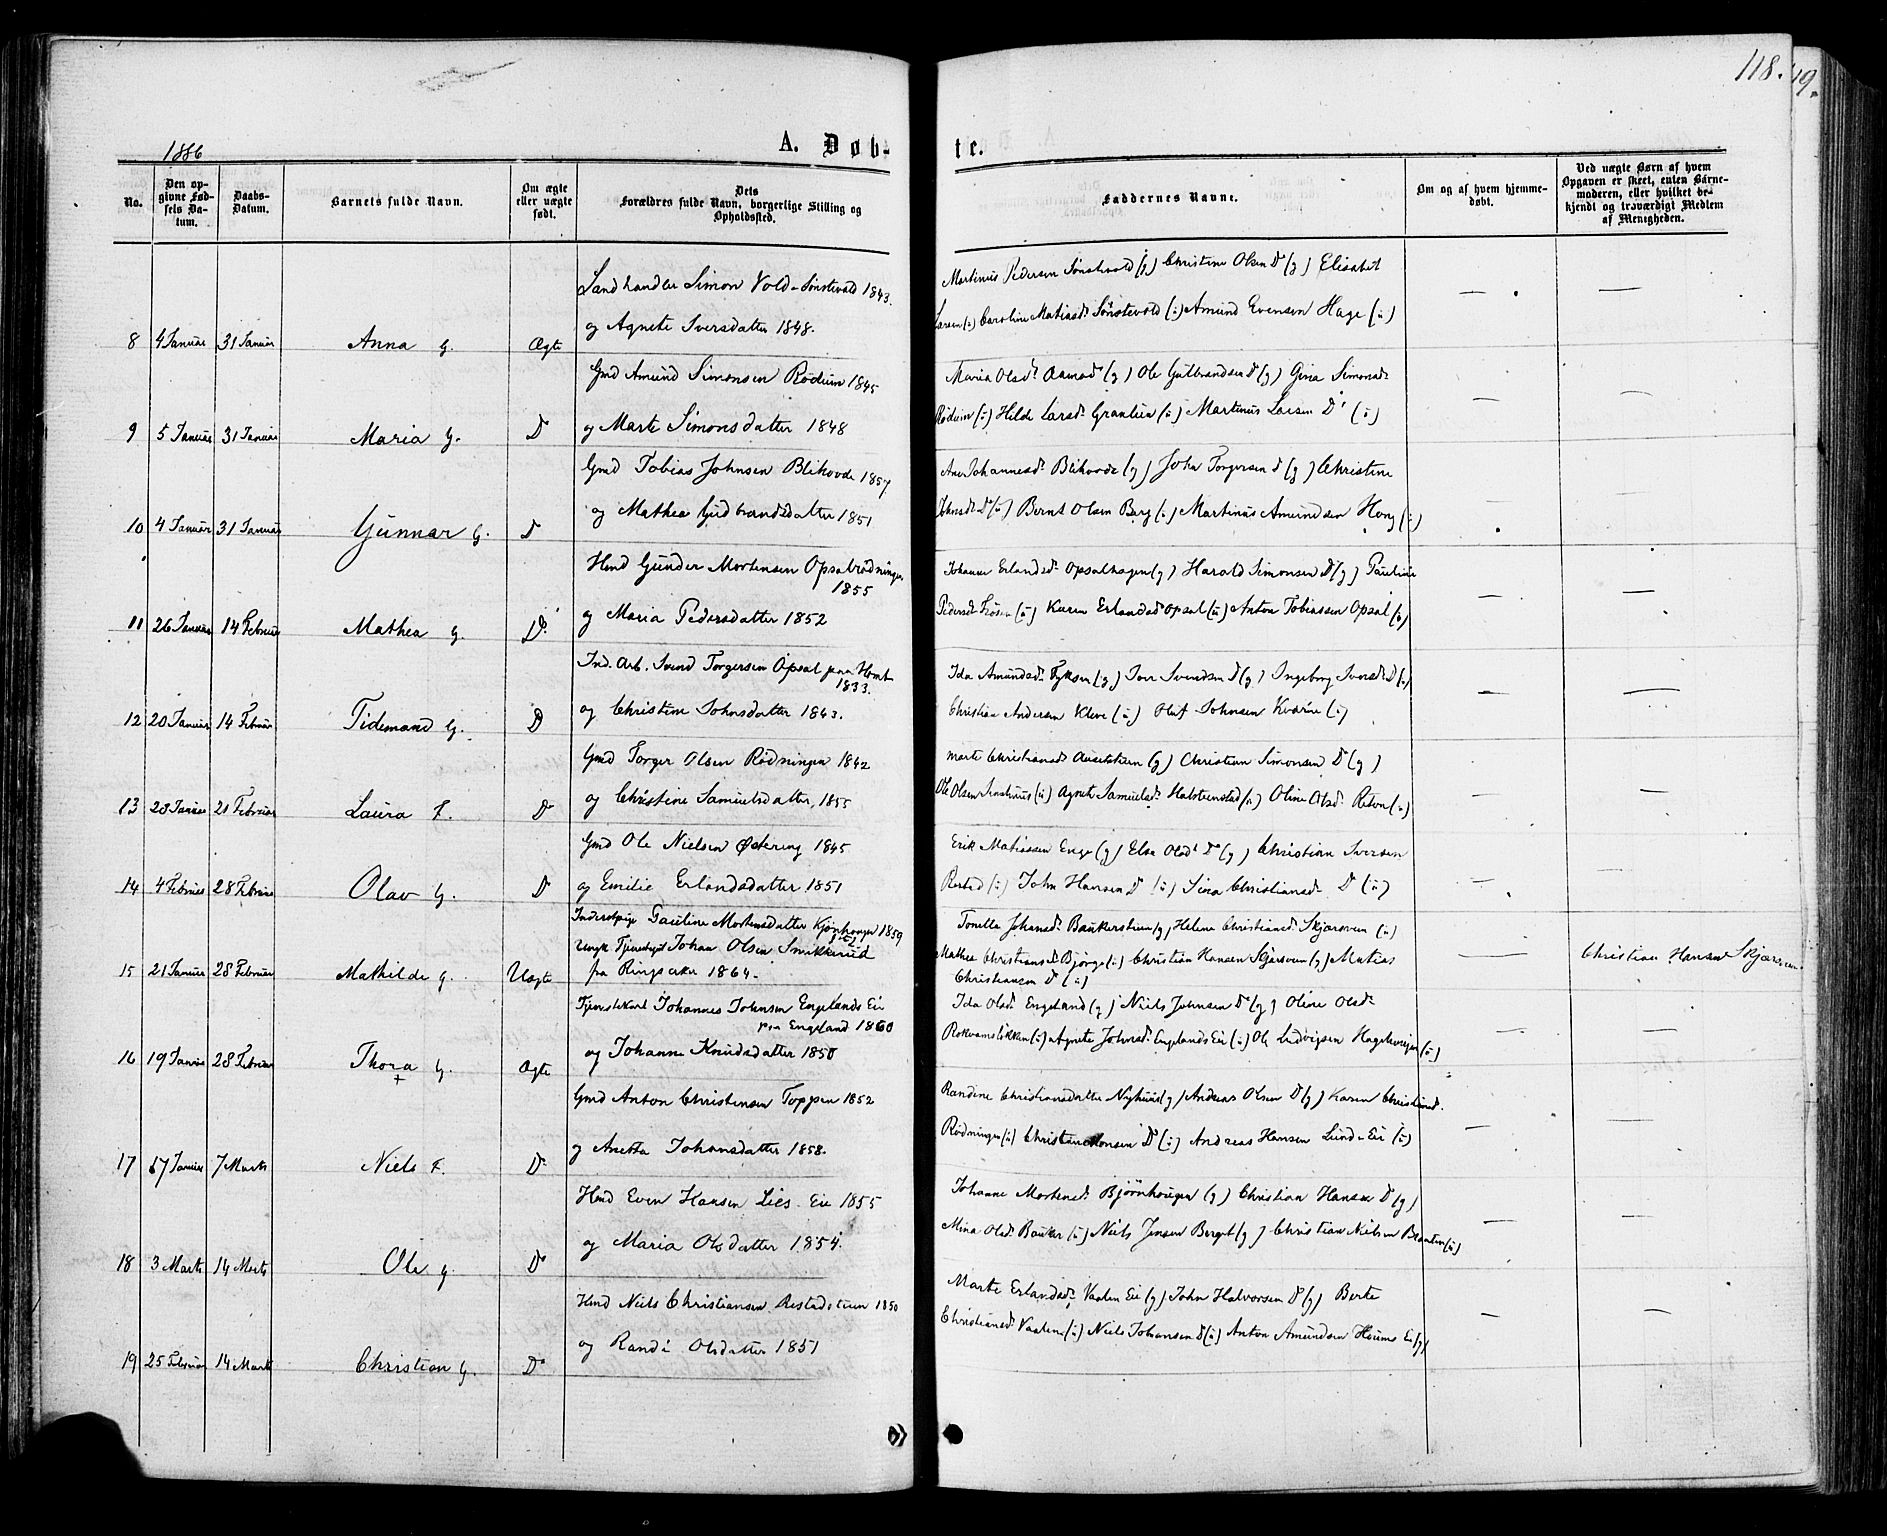 118. 119.
1886
A. Døb-
te.
No.
Den op-
givne Fød-
sels Da-
tum.
Daabs-
Datum.
Barnets fulde Navn.
Om ægte
eller uægte
født.
Dets
Forældres fulde Navn, borgerlige Stilling og
Opholdssted.
Faddernes Navne.
Om og af hvem hjemme-
døbt.
Ved uægte Børn af hvem
Opgaven er skeet, enten Barne-
moderen, eller hvilket be-
kjendt og troværdigt Medlem
af Menigheden.
Landhandler Simon Vold-Sønstevold 1843.
Martinus Pedersen Sønstevold (g) Christine Olsen D° (g) Elisabet
og Agnete Iversdatter 1848.
Larsen (u) Caroline Matiasd. Sønstevold (u) Amund Evensen Hage (u)
8 4 Januar 31 Januar Anna G. Ægte
Gmd Amund Simonsen Rödum 1845
Maria Olsd. (g) Ole Gulbrandsen D (g) Gina Simonsd.
9 5 Januar 31 Januar Maria G. D° og Marte Simonsdatter 1848
Rödum (u) Hilde Larsd. Granlien (u) Martinus Larsen D° (u)
Gmd Tobias Johnsen Blihovde 1857
Ane Johannesd. Blihovde (g) John Torgersen d (g) Christine
og Mathea Gudbrandsdatter 1851
Johnsd. D° (u) Bernt Olsen Berg (u) Martinus Amundsen Hong (u)
10 4 Januar 31 Januar Gunnar G. D°
Hmd Gunder Mortensen Opsalrødningen
1855
Johanne Erlandsd. Opsalhagen (g) Harald Simonsen D° (g) Pauline
11 26 Januar 14 Februar Mathea G. D° og Maria Pedersdatter 1852
Pedersd. (u) Karen Erlandsd Opsal (u) Anton Tobiassen Opsal (u)
Ind. Arb. Svend Torgersen Opsal paa
1833.
Ida Amundsd. (g) Svendsen D (g) Ingeborg Iversd. D (u)
12 20 Januar 14 Februar Tidemand G. D° og Christine Johnsdatter 1843.
Christian Andersen Kleve (u) Oluf Johnsen Kværne (u)
Gmd Torger Olsen Rødningen 1842
Marte Christiansd. (g) Christian Simonsen D° (g)
13 23 Januar 21 Februar Laura F. D° og Christine Samuelsdatter, 1855
Ole Olsen (u) Agnete Samuelsd. (u) Oline Olsd. (u)
Gmd Ole Nielsen Østering 1845
Erik Matiassen Enge (g) Else Olsd. D° (g) Christian Iversen
14 4 Februar 28 Februar Olav G. D° og Emilie Erlandsdatter 1851
Rested (u) John Hansen D° (u) Sina Christiansd. D° (u)
Pauline Mortensdatter 1859
Johan Olsen
Tonetta Johansd. (g) Helene Christiansd. Skjærsveen (u)
15 21 Januar 28 Februar Mathilde G. Uægte fra Ringsaker 1864.
Mathea Christiansd. Bjørge (u) Christian Hansen Skjærsveen (g) Matias
Christiansen D° (u)
Christian Hansen Skjærsveen
Tjenestekarl Johannes Johnsen Engelands Eie
paa Engeland 1860
Ida Olsd. Engeland (g) Niels Johnsen D° (g) Oline Olsd.
16 19 Januar 28 Februar Thora G. Ægte og Johanne Knudsdatter 1850
(u) Agnete Johnsd. Engelands Eie (u) Ole Ludvigsen (u)
Gmd Anton Christensen Toppen 1852
Randine Christiansdatter (g) Andreas Olsen D° (g) Karen Christiansd.
17 17 Januar 7 Marts Niels F. D° og Anetta Johansdatter 1858.
Rødningen (u) Christian Hansen D° (u) Andreas Hansen Lund-Eie (u)
Hmd Even Hansen Lies-Eie 1855
Johanne Mortensd. Bjørnhougen (g) Christian Hansen D° (g)
18 3 Marts 14 Marts Ole G. D° og Maria Olsdatter 1854.
Mina Olsd. Bauker (u) Niels Jensen Berget (g) Christian Nielsen (u)
Hmd Niels Christiansen Restadstuen 1850
Marte Erlandsd. Vaalen Eie (g) John Halvorsen D° (g) Berte
Christiansd. Vaalen (u) Niels Johansen D (u) Anton Amundsen Houms Eie (g)
19 25 Februar 14 Marts Christian G. D° og Randi Olsdatter 1851